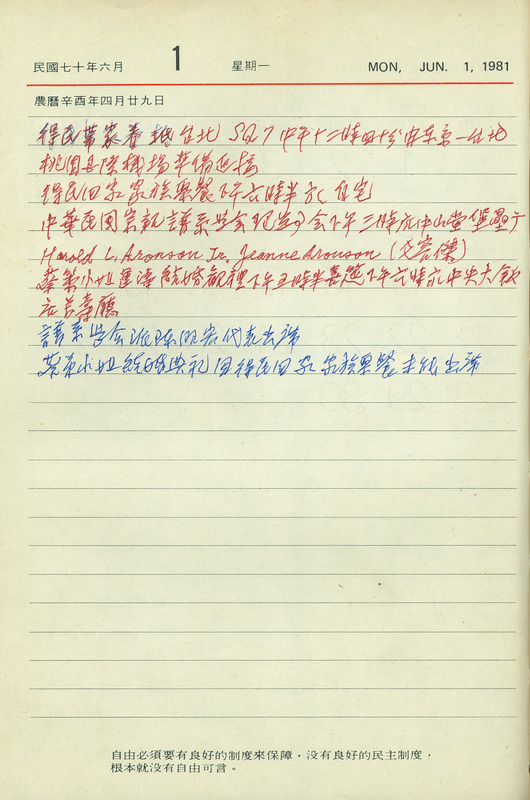 民國七十年六月 1 星期一 MON, JUN. 1, 1981
農曆辛酉年四月廿九日
得民華家眷抵台北 SQ7 中午十二時四十分由東京－台北
桃園國際機場準備迎接
得民回家家族聚餐下午六時半於自宅
中華民國宗親譜系學會 下午三時於中山堂堡壘廳
Harold L. Aronson Jr. Jeanne Aronson (艾宏傑)
蔡 小姐 結婚觀禮下午五時半喜筵下午六時於中央大飯
店 壽廳
譜系學會派陳 代表出席
蔡 小姐結婚典禮因得民回家家族聚餐未能出席
自由必須要有良好的制度來保障，沒有良好的民主制度，
根本就沒有自由可言。